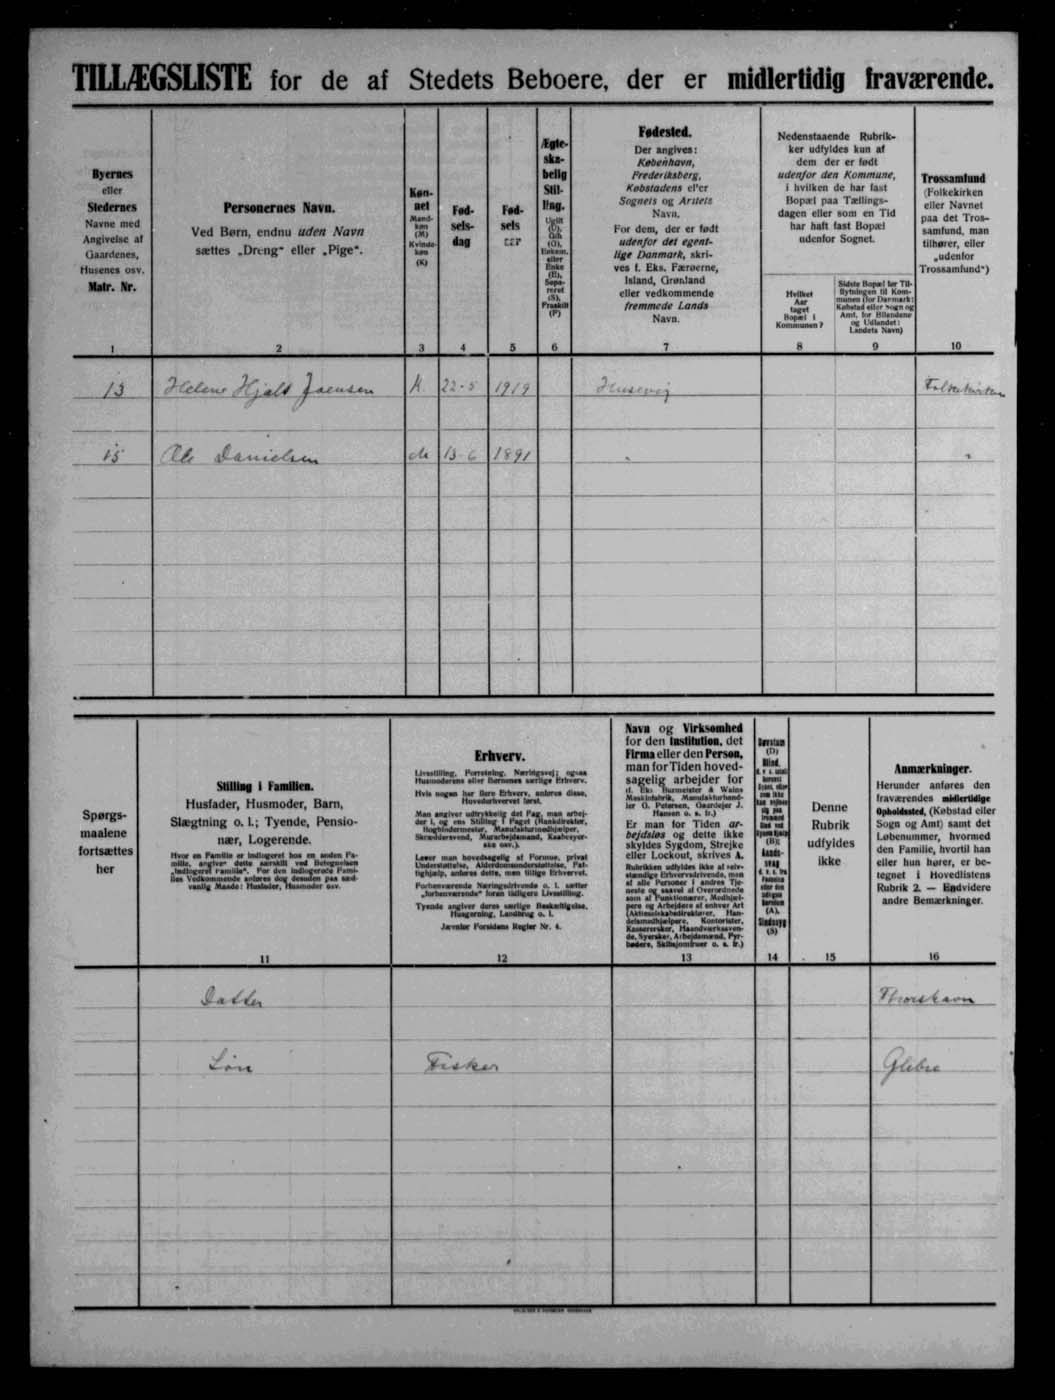 TILLÆGSLISTE for de af Stedets Beboere, der er midlertidig fraværende.
Byernes
eller
Stedernes
Navne med
Angivelse af
Gaardenes,
Husenes osv.
Matr. Nr.
Personernes Navn.
Ved Børn, endnu uden Navn
sættes „Dreng“ eller „Pige“.
Køn-
net
Mand-
køn
(M)
Kvinde-
køn
(K)
Fød-
sels-
dag
Fød-
sels
Ægte-
ska-
belig
Stil-
ling.
Ugift
(U),
Gift
(G),
Enkem.
eller
Enke
(E),
Sepa-
reret
(S),
Fraskilt
(F)
Fødested.
Der angives:
København,
Frederiksberg,
Købstadens el'er
Sognets og Amtets
Navn.
For dem, der er født
udenfor det egent-
lige Danmark, skri-
ves f. Eks. Færøerne,
Island, Grønland
eller vedkommende
fremmede Lands
Navn.
Nedenstaaende Rubrik-
ker udfyldes kun af
dem der er født
udenfor den Kommune,
i hvilken de har fast
Bopæl paa Tællings-
dagen eller som en Tid
har haft fast Bopæl
udenfor Sognet.
Hvilket
Aar
taget
Bopæl i
Kommunen?
Sidste Bopæl før Til-
flytningen til Kom-
munen (for Danmark:
Købstad eller Sogn og
Amt, for Bilandene
og Udlandet:
Landets Navn)
Trossamfund
(Folkekirken
eller Navnet
paa det Tros-
samfund, man
tilhører, eller
„udenfor
Trossamfund“)
1 2 3 4 5 6 7 8 9 10
13 Helene Hjalt Joensen K 22-5 1919 Husevig Folkekirken
15 Ole Danielsen M 13-6 1891 " "
Spørgs-
maalene
fortsættes
her
Stilling i Familien.
Husfader, Husmoder, Barn,
Slægtning o. l.; Tyende, Pensio-
nær, Logerende.
Hvor en Familie er indlogeret hos en anden Fa-
milie, angives dette særskilt ved Betegnelsen
„indlogeret Familie“. For den indlogerede Fami-
lies Vedkommende anføres dog desuden paa sæd-
vanlig Maade: Husfader, Husmoder osv.
Erhverv.
Livsstilling, Forretning, Næringsvej; ogsaa
Husmoderens eller Børnenes særlige Erhverv.
Hvis nogen har flere Erhverv, anføres disse,
Hovederhvervet først.
Man angiver udtrykkelig det Fag, man arbej-
der i, og ens Stilling i Faget (Bankdirektør,
Bogbindermester, Manufakturmedhjælper,
Skræddersvend, Murarbejdsmand, Kaabesyer-
ske osv.).
Lever man hovedsagelig af Formue, privat
Understøttelse, Alderdomsunderstøttelse, Fat-
tighjælp, anføres dette, men tillige Erhvervet.
Forhenværende Næringsdrivende o. l. sætter
„forhenværende“ foran tidligere Livsstilling.
Tyende angiver deres særlige Beskæftigelse,
Husgerning, Landbrug o. l.
Jævnfør Forsidens Regler Nr. 4.
Navn og Virksomhed
for den Institution, det
Firma eller den Person,
man for Tiden hoved-
sagelig arbejder for
(f. Eks. Burmeister & Wains
Maskinfabrik, Manufakturhand-
ler G. Petersen, Gaardejer J.
Hansen o. s. fr.)
Er man for Tiden ar-
bejdsløs og dette ikke
skyldes Sygdom, Strejke
eller Lockout, skrives A.
Rubrikken udfyldes ikke af selv-
stændige Erhvervsdrivende, men
af alle Personer i andres Tje-
neste og saavel af Overordnede
som af Funktionærer, Medhjæl-
pere og Arbejdere af enhver Art
(Aktieselskabsdirektører, Han-
delsmedhjælpere, Kontorister,
Kasserersker, Haandværkssven-
de, Syersker, Arbejdsmænd, Fyr-
bødere, Skibsjomfruer o. s. fr.)
Døvstum
(D)
Blind,
Aands-
svag
(A),
Sindssyg
(S)
Denne
Rubrik
udfyldes
ikke
Anmærkninger.
Herunder anføres den
fraværendes midlertidige
Opholdssted, (Købstad eller
Sogn og Amt) samt det
Løbenummer, hvormed
den Familie, hvortil han
eller hun hører, er be-
tegnet i Hovedlistens
Rubrik 2. — Endvidere
andre Bemærkninger.
11 12 13 14 15 16
Datter Thorshavn
Søn Fisker Glebre